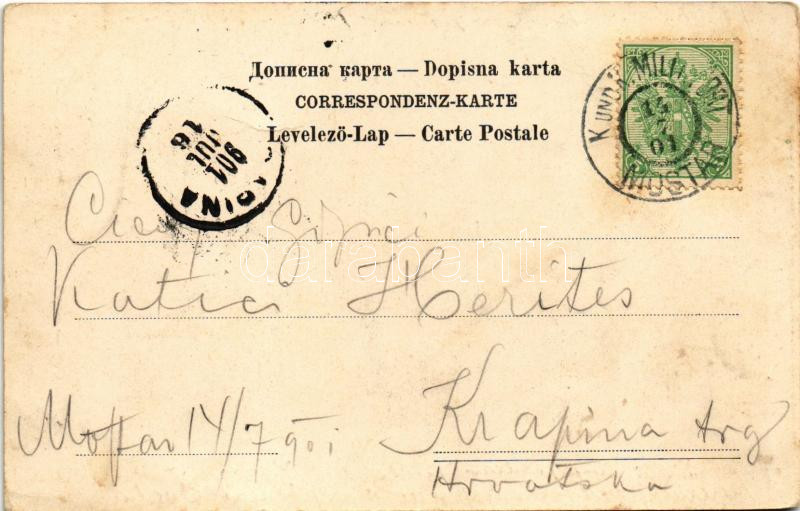 Дописна карта — Dopisna karta
CORRESPONDENZ-KARTE
Levelező-Lap — Carte Postale
K UND K MILIT. POST
14
7
01
MOSTAR
APINA
901
JUL
16
Katica Herites
Mostar 14/7 901
Krapina trg
Hrvatska
darabanth